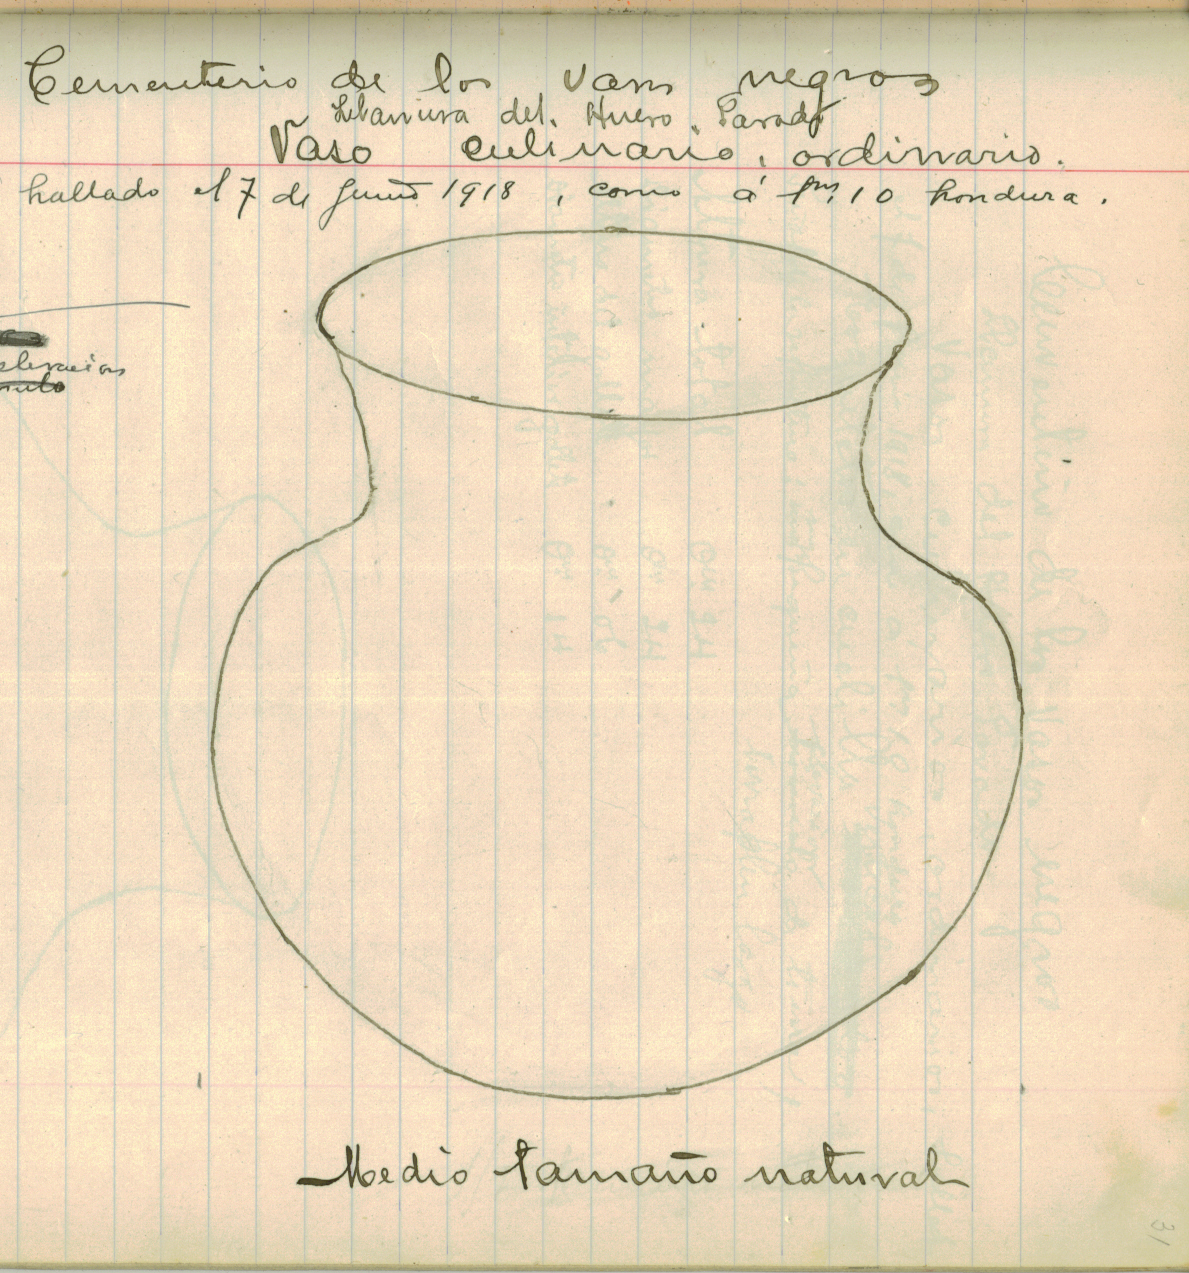 Cementerio de los vasos negros
Llanura del Hueso Parado
Vaso culinario, ordinario.
hallado el 7 de Junio 1918, como á 1m,10 hondura.
Medio tamaño natural
31